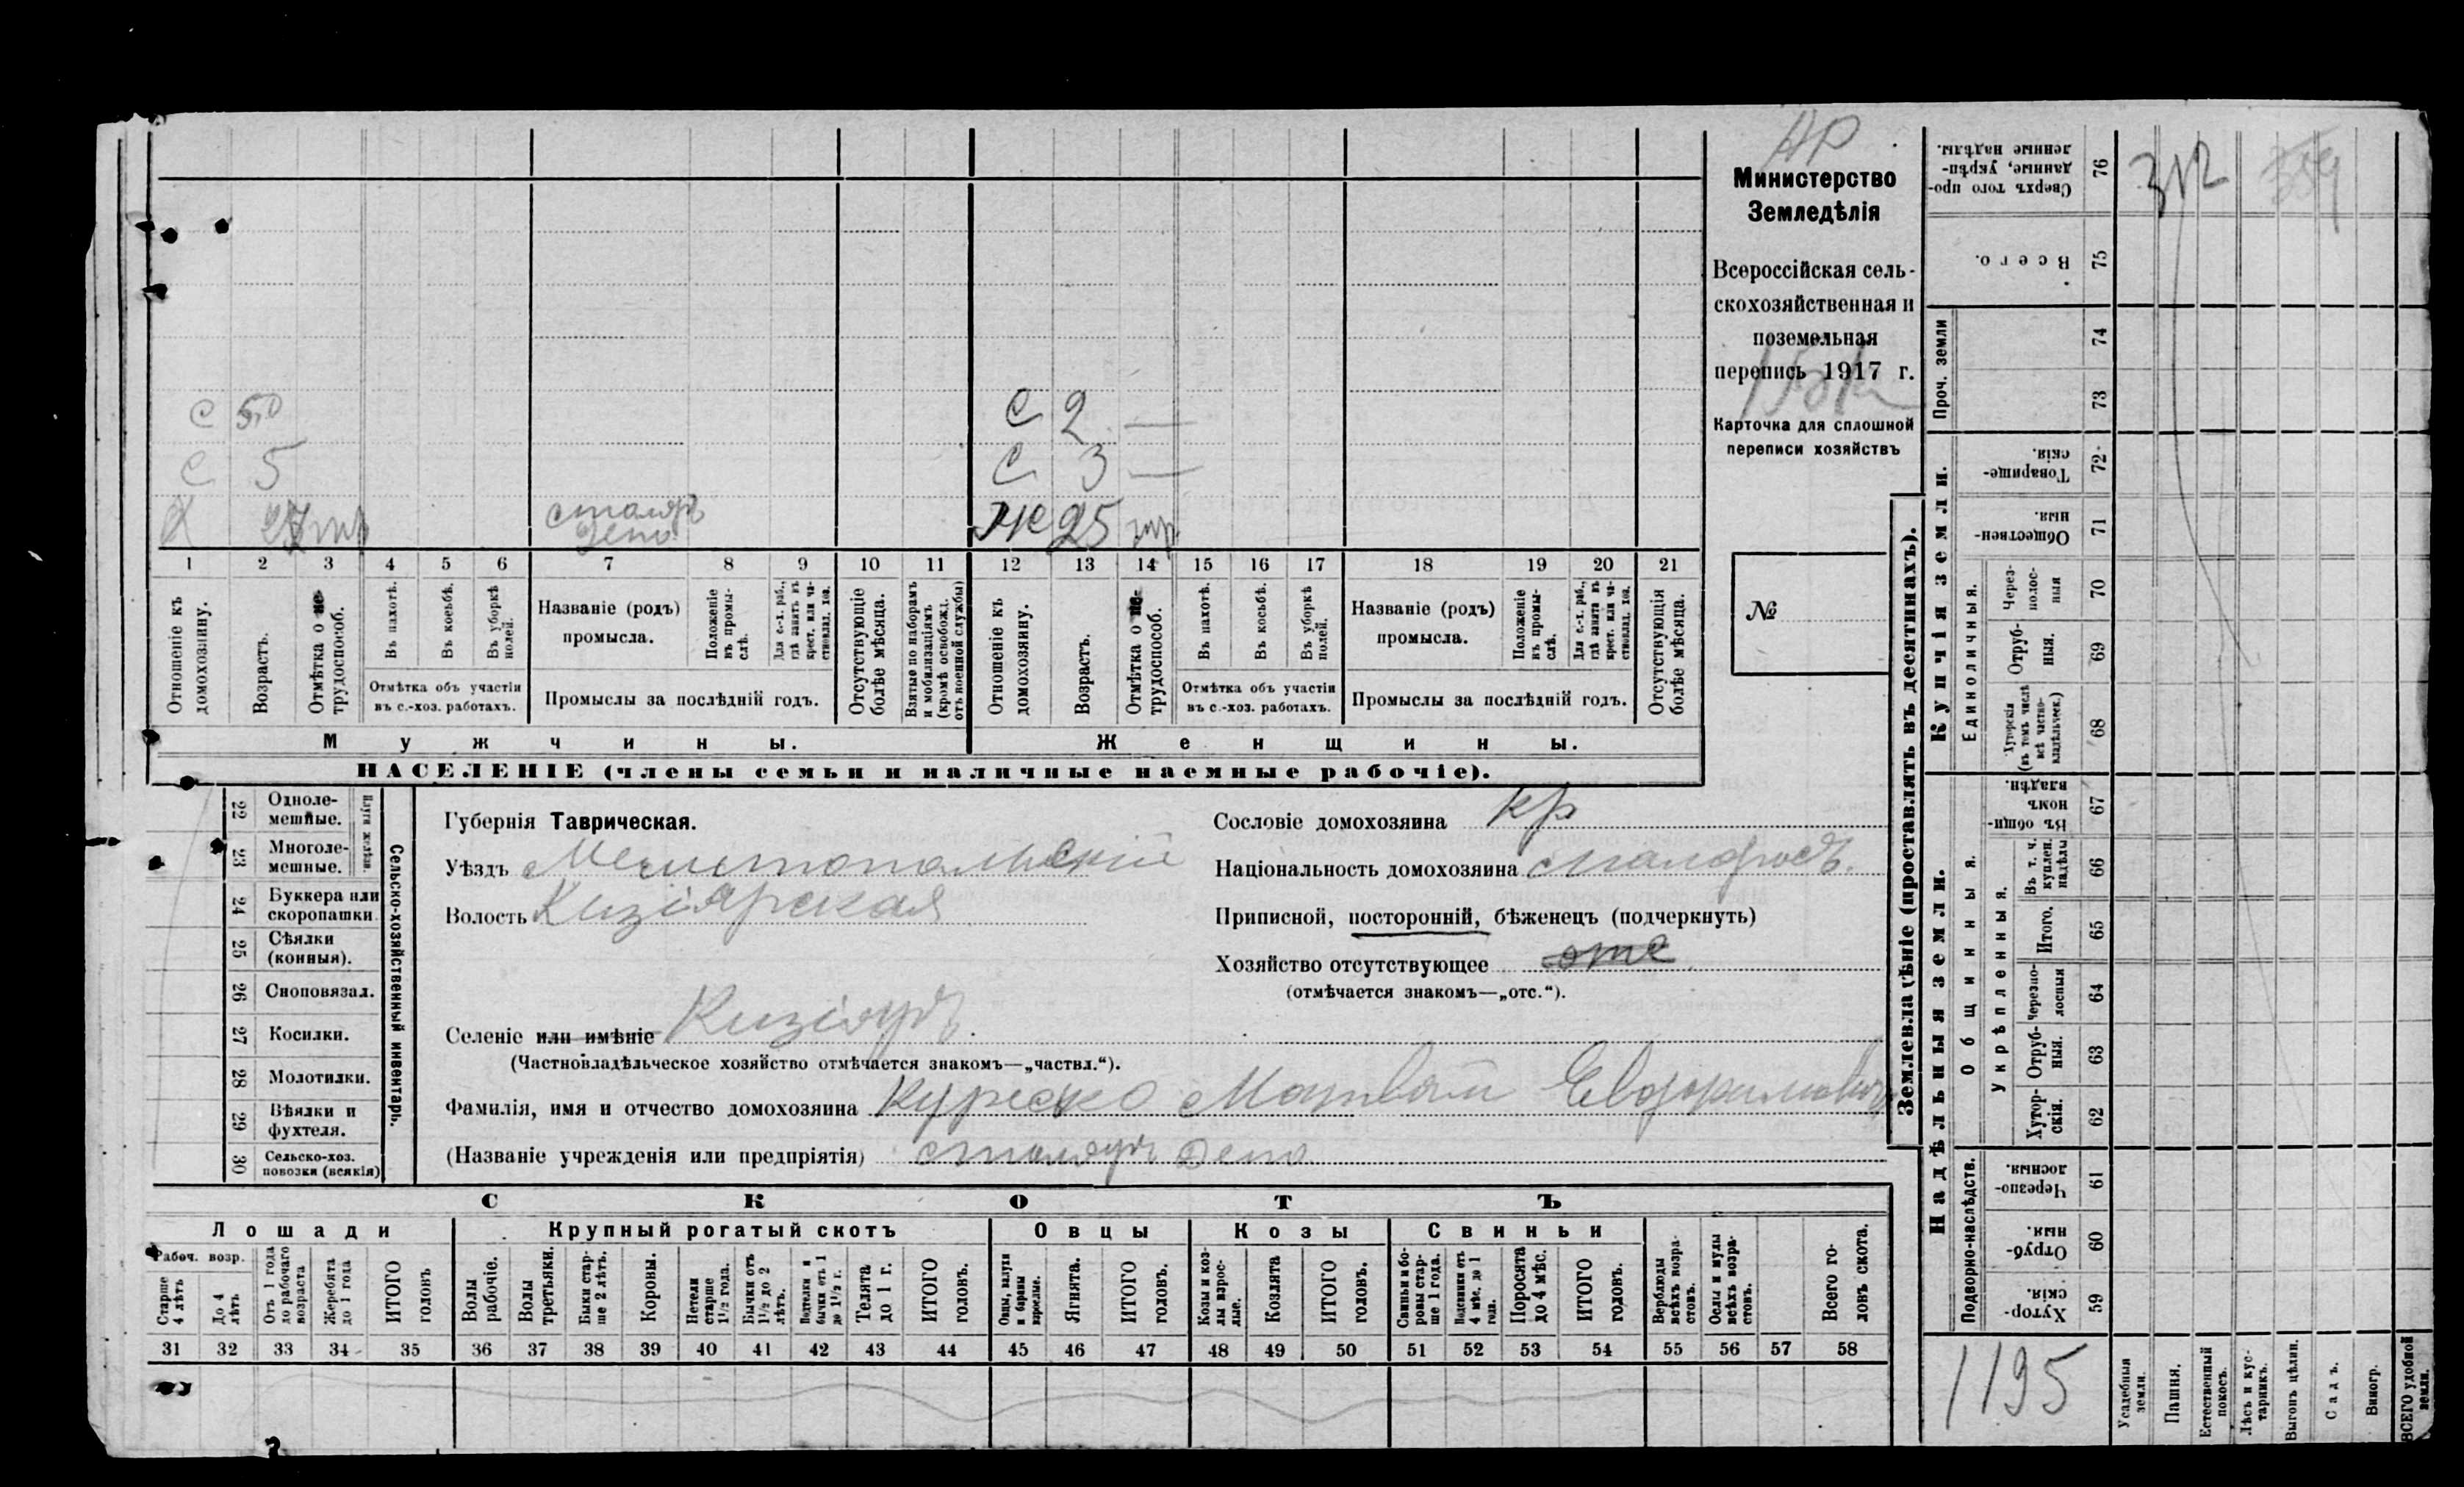 АР
Министерство
Земледѣлія
Всероссійская сель-
скохозяйственная и
поземельная
перепись 1917 г.
Карточка для сплошной
переписи хозяйствъ
№
С 2 —
С 5
С 3 —
столяръ
депо
Ж 25 гр
1 2 3 4 5 6 7 8 9 10 11 12 13 14 15 16 17 18 19 20 21
Отношеніе къ домохозяину.
Возрастъ.
Отмѣтка о не- трудоспособ.
Въ пахотѣ.
Въ косьбѣ.
Въ уборкѣ полей.
Отмѣтка объ участіи
въ с.-хоз. работахъ.
Названіе (родъ)
промысла.
Положеніе въ промы- слѣ.
Для с.-х. раб., гдѣ занятъ въ крест. или ча- стновлад. хоз.
Промыслы за послѣдній годъ.
Отсутствующіе болѣе мѣсяца.
Взятые по наборамъ и мобилизаціямъ (кромѣ освобожд. отъ военной службы)
Отношеніе къ домохозяину.
Возрастъ.
Отмѣтка о не- трудоспособ.
Въ пахотѣ.
Въ косьбѣ.
Въ уборкѣ полей.
Отмѣтка объ участіи
въ с.-хоз. работахъ.
Названіе (родъ)
промысла.
Положеніе въ промы- слѣ.
Для с.-х. раб., гдѣ занята въ крест. или ча- стновлад. хоз.
Промыслы за послѣдній годъ.
Отсутствующія болѣе мѣсяца.
Мужчины.
Женщины.
НАСЕЛЕНІЕ (члены семьи и наличные наемные рабочіе).
Сельско-хозяйственный инвентарь.
22 Одноле- мешные.
23 Многоле- мешные.
24 Буккера или скоропашки
25 Сѣялки (конныя).
26 Сноповязал.
27 Косилки.
28 Молотилки.
29 Вѣялки и фухтеля.
30 Сельско-хоз. повозки (всякія)
Губернія Таврическая.
Уѣздъ Мелитопольскій
Волость Кизіярская
Селеніе или имѣніе Кизіяръ
(Частновладѣльческое хозяйство отмѣчается знакомъ—„частвл.“).
Сословіе домохозяина кр
Національность домохозяина малоросъ.
Приписной, посторонній, бѣженецъ (подчеркнуть)
Хозяйство отсутствующее отс
(отмѣчается знакомъ—„отс.“).
Фамилія, имя и отчество домохозяина Матвѣй
(Названіе учрежденія или предпріятія) столяръ депо
СКОТЪ
Лошади
Крупный рогатый скотъ
Овцы
Козы
Свиньи
Рабоч. возр.
Старше 4 лѣтъ
До 4 лѣтъ
Отъ 1 года до рабочаго возраста
Жеребята до 1 года
ИТОГО головъ
Волы рабочіе.
Волы третьяки.
Быки стар- ше 2 лѣтъ.
Коровы.
Нетели старше 1½ года.
Бычки отъ 1½ до 2 лѣтъ.
Подтелки и бычки отъ 1 до 1½ г.
Телята до 1 г.
ИТОГО головъ.
Овцы, валухи и бараны взрослые.
Ягнята.
ИТОГО головъ.
Козы и коз- лы взрос- лые.
Козлята
ИТОГО головъ.
Свиньи и бо- ровы стар- ше 1 года.
Подсвинки отъ 4 мѣс. до 1 года.
Поросята до 4 мѣс.
ИТОГО головъ.
Верблюды всѣхъ возра- стовъ.
Ослы и мулы всѣхъ возра- стовъ.
Всего го- ловъ скота.
31 32 33 34 35 36 37 38 39 40 41 42 43 44 45 46 47 48 49 50 51 52 53 54 55 56 57 58
Землевладѣніе (проставлять въ десятинахъ).
Купчія земли.
Проч. земли
Сверхъ того про- данные, укрѣп- ленные надѣлы. 76
312
359
Всего. 75
74
73
Товарище- скія. 72
Обществен- ныя. 71
Единоличныя.
Через- полос- ныя 70
Отруб- ныя. 69
Хуторскія (въ томъ числѣ всѣ частно- владѣльческ.) 68
Надѣльныя земли.
Общинныя.
Въ общи- номъ владѣн. 67
Укрѣпленныя.
Въ т. ч. куплен. надѣлы 66
Итого. 65
Черезпо- лосныя 64
Отруб- ныя. 63
Хутор- скія. 62
Подворно-наслѣдств.
Черезпо- лосныя. 61
Отруб- ныя. 60
Хутор- скія. 59
1195
Усадебныя земли.
Пашня.
Естественный покосъ.
Лѣсъ и кус- тарникъ.
Выгонъ цѣлин.
Садъ.
Виногр.
ВСЕГО удобной земли.